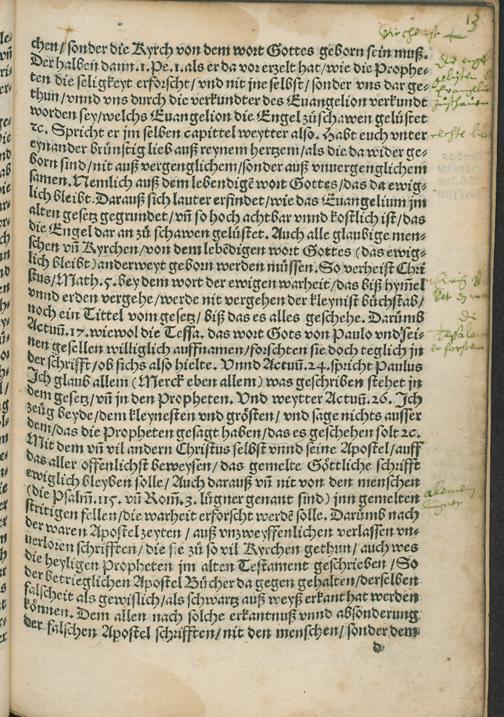 13
chen/ sonder die Kyrch von dem wort Gottes geborn sein muß.
Der halben dann.1.Pe.1. als er da vor erzelt hat/ wie die Prophe⸗
ten die seligkeyt erforscht/ vnd nit jne selbst/ sonder vns dar ge⸗
thun/ vnnd vns durch die verkundter des Euangelion verkundt
worden sey/ welchs Euangelion die Engel zů schawen gelüstet
ꝛc. Spricht er jm selben capittel weytter also. Habt euch vnter
eynander brünstig lieb auß reynem hertzem/ als die da wider ge⸗
born sind/ nit auß vergenglichem/ sonder auß vnuergenglichem
samen. Nemlich auß dem lebendigē wort Gottes/ das da ewig⸗
lich bleibt. Darauß sich lauter erfindet/ wie das Euangelium jm
alten gesetz gegrundet/ vñ so hoch achtbar vnnd kostlich ist/ das
die Engel dar an zů schawen gelüstet. Auch alle glaubige men⸗
schen vñ Kyrchen/ von dem lebēdigen wort Gottes (das ewig⸗
lich bleibt) anderweyt geborn werden müssen. So verheist Chri
stus/ Math.5. bey dem wort der ewigen warheit/ das biß hym̄el
vnnd erden vergehe/ werde nit vergehen der kleynist bůchstab/
noch ein Tittel vom gesetz/ biß das es alles geschehe. Darůmb
Actuū.17. wiewol die Tessa. das wort Gots von Paulo vnd sei⸗
nen gesellen williglich auffnamen/ forschten sie doch teglich in
der schrifft/ ob sichs also hielte. Vnnd Actuū.24. spricht Paulus
Ich glaub allem (Merck eben allem) was geschriben stehet in
dem gesetz/ vñ in den Propheten. Vnd weytter Actuū.26. Ich
zeüg beyde/ dem kleynesten vnd grösten/ vnd sage nichts ausser
dem/ das die Propheten gesagt haben/ das es geschehen solt ꝛc.
Mit dem vñ vil andern Christus selbst vnnd seine Apostel/ auff
das aller offenlichst beweysen/ das gemelte Göttliche schrifft
ewiglich bleyben solle/ Auch darauß vñ nit von den menschen
(die Psalm̄.115. vñ Rom̄.3. lügner genant sind) jnn gemelten
stritigen fellen/ die warheit erforscht werdē solle. Darůmb nach
der waren Apostel zeyten/ auß vnzweyffenlichen verlassen vn⸗
uerloren schrifften/ die sie zů so vil Kyrchen gethun/ auch wes
die heyligen Propheten jm alten Testament geschrieben/ So
der betrieglichen Apostel Bücher da gegen gehalten/ derselben
falscheit als gewislich/ als schwartz auß weyß erkant hat werden
können. Dem allen nach solche erkantnuß vnnd absonderung
der falschen Apostel schrifften/ nit den menschen/ sonder dem